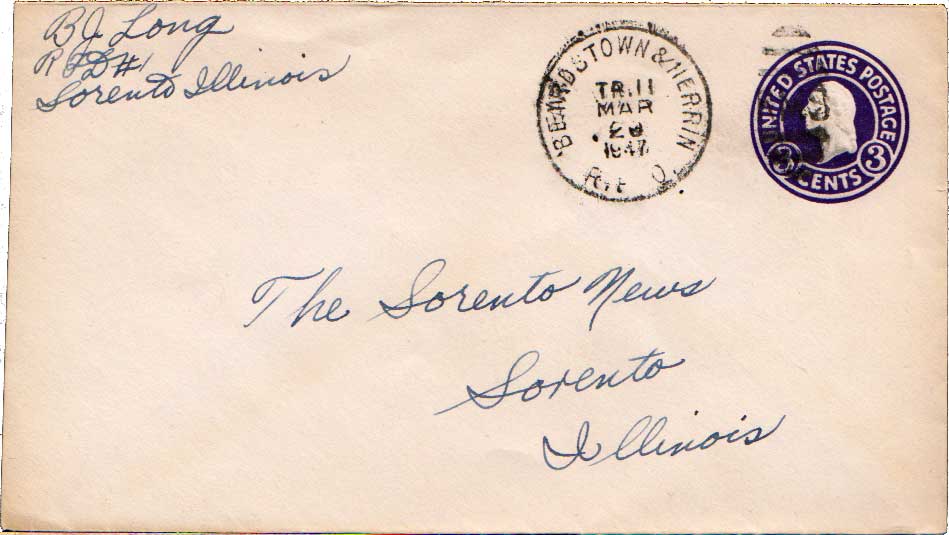 B J Long
R F D #1
Sorento Illinois
BEARDSTOWN & HERRIN
TR. 11
MAR
1947
R.P.O.
UNITED STATES POSTAGE
3 CENTS 3
The Sorento News
Sorento
Illinois